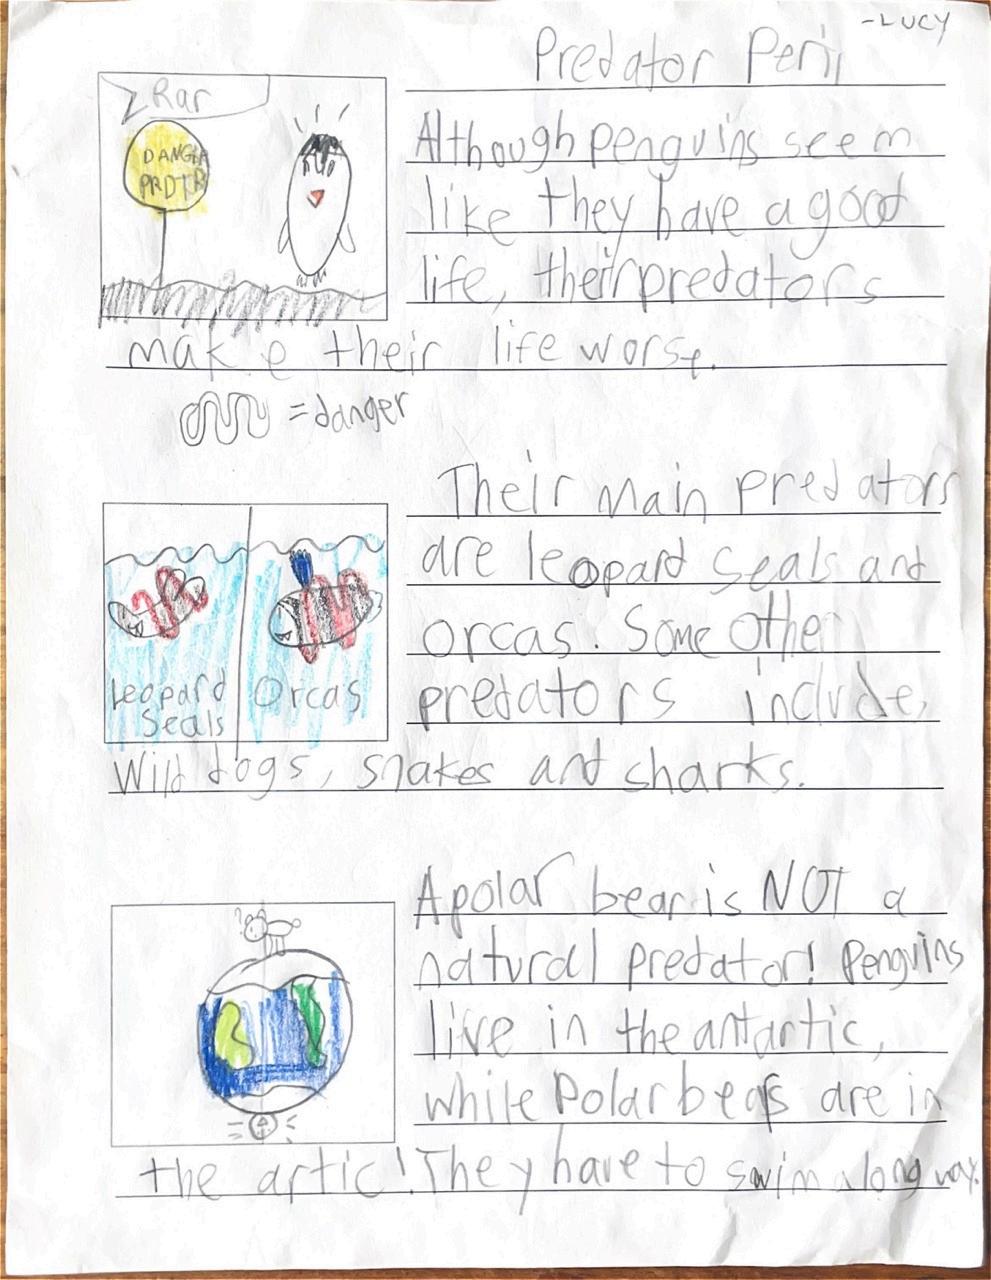 -LUCY
Predator Peril
Rar
DANGER
PRDTR
Although penguins seem
like they have a good
life, their predators
make their life worse.
=danger
Their main predators
are leopard seals and
orcas. Some other
predators include,
Wild dogs, snakes and sharks.
Leopard
Seals
Orcas
A polar bear is NOT a
natural predator! Penguins
live in the antartic,
while Polar bears are in
the artic! They have to swim a long way.